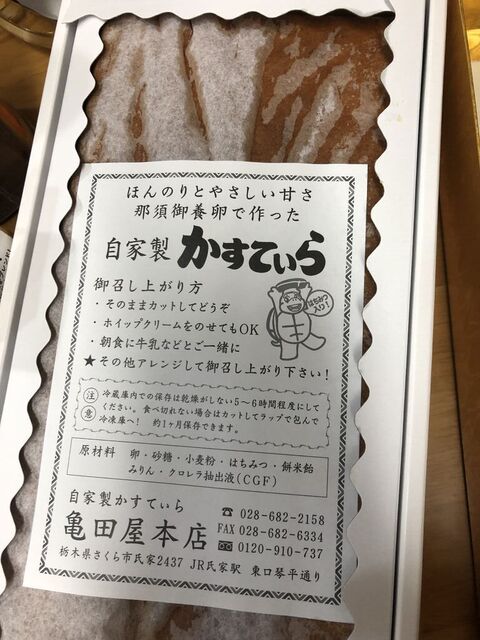 ほんのりとやさしい甘さ
那須御養卵で作った
自家製 かすてぃら
御召し上がり方
・そのままカットしてどうぞ
・ホイップクリームをのせてもOK
・朝食に牛乳などとご一緒に
★その他アレンジして御召し上がり下さい!
はちみつ
入り!
注意
冷蔵庫内での保存は乾燥がしない5～6時間程度にして
ください。食べ切れない場合はカットしてラップで包んで
冷凍庫へ! 約1ヶ月保存できます。
原材料 卵・砂糖・小麦粉・はちみつ・餅米飴
みりん・クロレラ抽出液(CGF)
自家製かすてぃら
亀田屋本店
☎ 028-682-2158
FAX 028-682-6334
0120-910-737
栃木県さくら市氏家2437 JR氏家駅 東口琴平通り